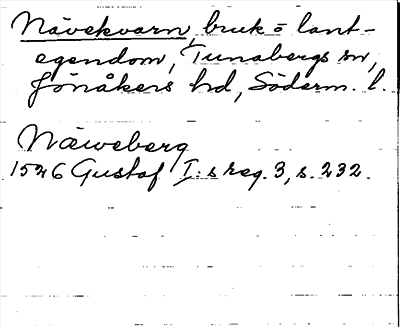 Nävekvarn, bruk o lant-
egendom, Tunabergs sn,
Jönåkers hd, Söderm. l.
Næweberg
1526 Gustaf I:s reg. 3, s. 232.